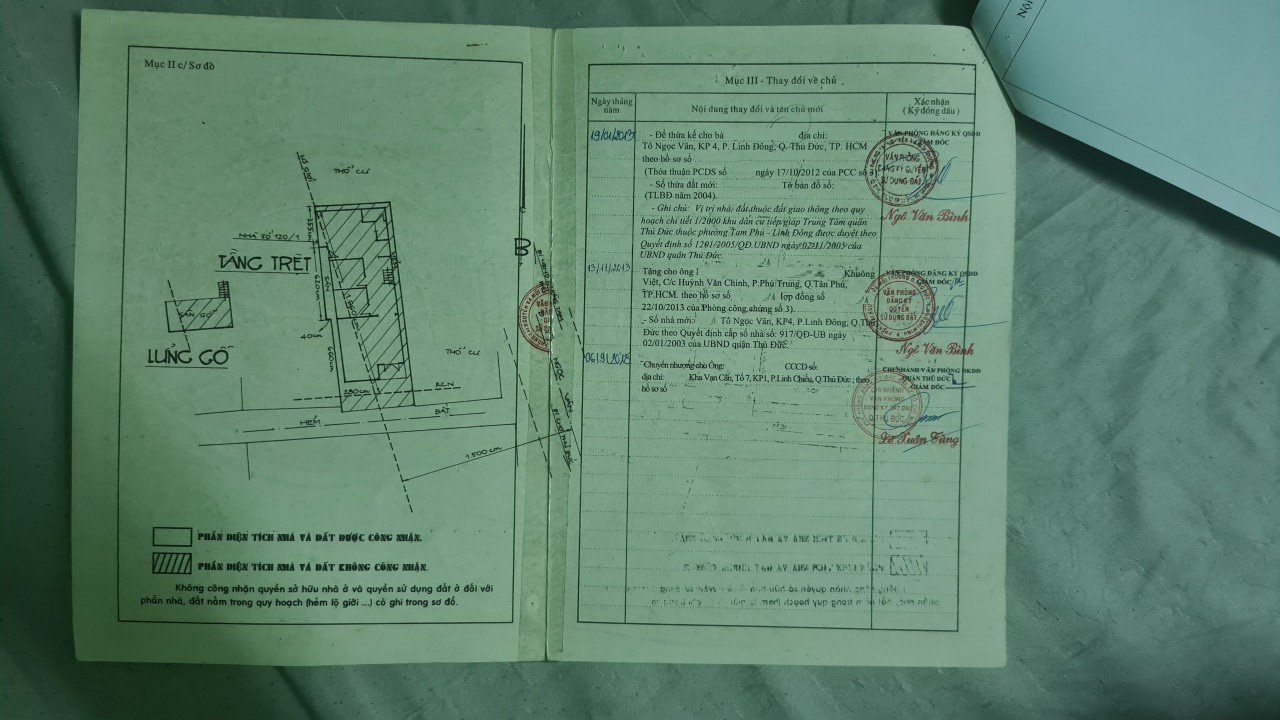 Mục II c/ Sơ đồ
LỘ GIỚI
THỔ CƯ
NHÀ SỐ 120/1
TẦNG TRỆT
SÀN GỖ
LỬNG GỖ
THỔ CƯ
HẺM
BÁT
1.500cm
B
NGỌC VÂN
PHẦN DIỆN TÍCH NHÀ VÀ ĐẤT ĐƯỢC CÔNG NHẬN.
PHẦN DIỆN TÍCH NHÀ VÀ ĐẤT KHÔNG CÔNG NHẬN.
Không công nhận quyền sở hữu nhà ở và quyền sử dụng đất ở đối với
phần nhà, đất nằm trong quy hoạch (hẻm lộ giới ...) có ghi trong sơ đồ.
Mục III - Thay đổi về chủ
Ngày tháng năm
Nội dung thay đổi và tên chủ mới
Xác nhận
( Ký đóng dấu )
- Để thừa kế cho bà địa chỉ:
Tô Ngọc Vân, KP 4, P. Linh Đông, Q. Thủ Đức, TP. HCM
theo hồ sơ số
(Thỏa thuận PCDS số ngày 17/10/2012 của PCC số
- Số thửa đất mới: Tờ bản đồ số:
(TLBĐ năm 2004).
Ghi chú: Vị trí nhà, đất thuộc đất giao thông theo quy
hoạch chi tiết 1/2000 khu dân cư tiếp giáp Trung Tâm quận
Thủ Đức thuộc phường Tam Phú - Linh Đông được duyệt theo
Quyết định số 1201/2005/QĐ.UBND ngày 02/11/2005 của
UBND quận Thủ Đức.
VĂN PHÒNG ĐĂNG KÝ QSDĐ
GIÁM ĐỐC
VĂN PHÒNG
ĐĂNG KÝ QUYỀN
SỬ DỤNG ĐẤT
Ngô Văn Bình
13/11/2013
Tặng cho ông Khuông
Việt, C/c Huỳnh Văn Chính, P.Phú Trung, Q.Tân Phú,
TP.HCM. theo hồ sơ số lợp đồng số
22/10/2013 của Phòng công chứng số 3).
- Số nhà mới: Tô Ngọc Vân, KP4, P.Linh Đông, Q.Thủ
Đức theo Quyết định cấp số nhà số: 917/QĐ-UB ngày
02/01/2003 của UBND quận Thủ Đức.
VĂN PHÒNG ĐĂNG KÝ QSDĐ
GIÁM ĐỐC
VĂN PHÒNG
ĐĂNG KÝ
QUYỀN
SỬ DỤNG ĐẤT
Ngô Văn Bình
Chuyển nhượng cho Ông: CCCD số:
địa chỉ: Kha Vạn Cân, Tổ 7, KP1, P.Linh Chiểu, Q.Thủ Đức; theo
hồ sơ số
CHI NHÁNH VĂN PHÒNG ĐKĐĐ
QUẬN THỦ ĐỨC
GIÁM ĐỐC
CHI NHÁNH
VĂN PHÒNG
ĐĂNG KÝ ĐẤT ĐAI
Q.THỦ ĐỨC
Lê Xuân Tùng